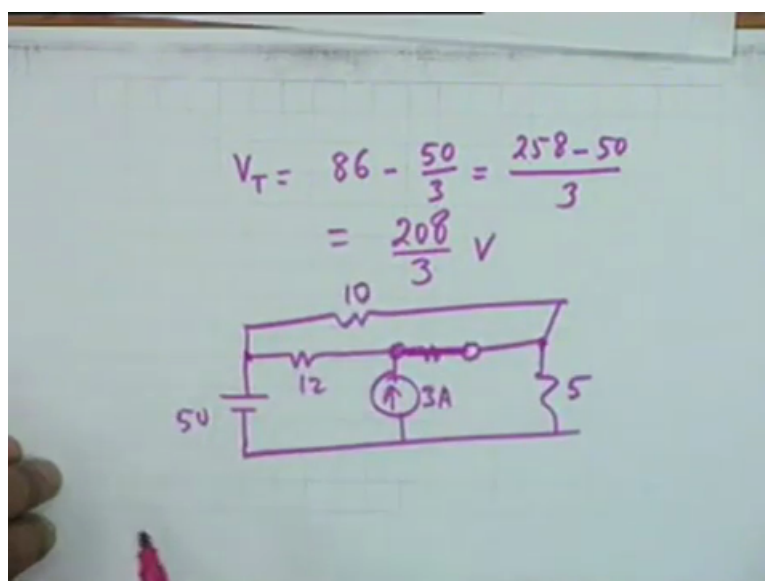 V_T = 86 - 50/3 = (258-50)/3
= 208/3 V
10
12
3A
5
50